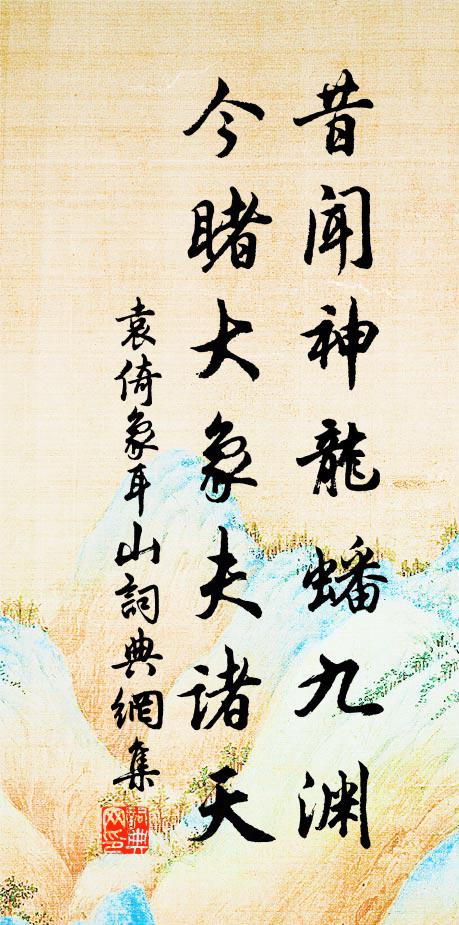 昔闻神龍蟠九渊
今睹大象夫诸天
袁倚象耳山詞典網集
詞典网印